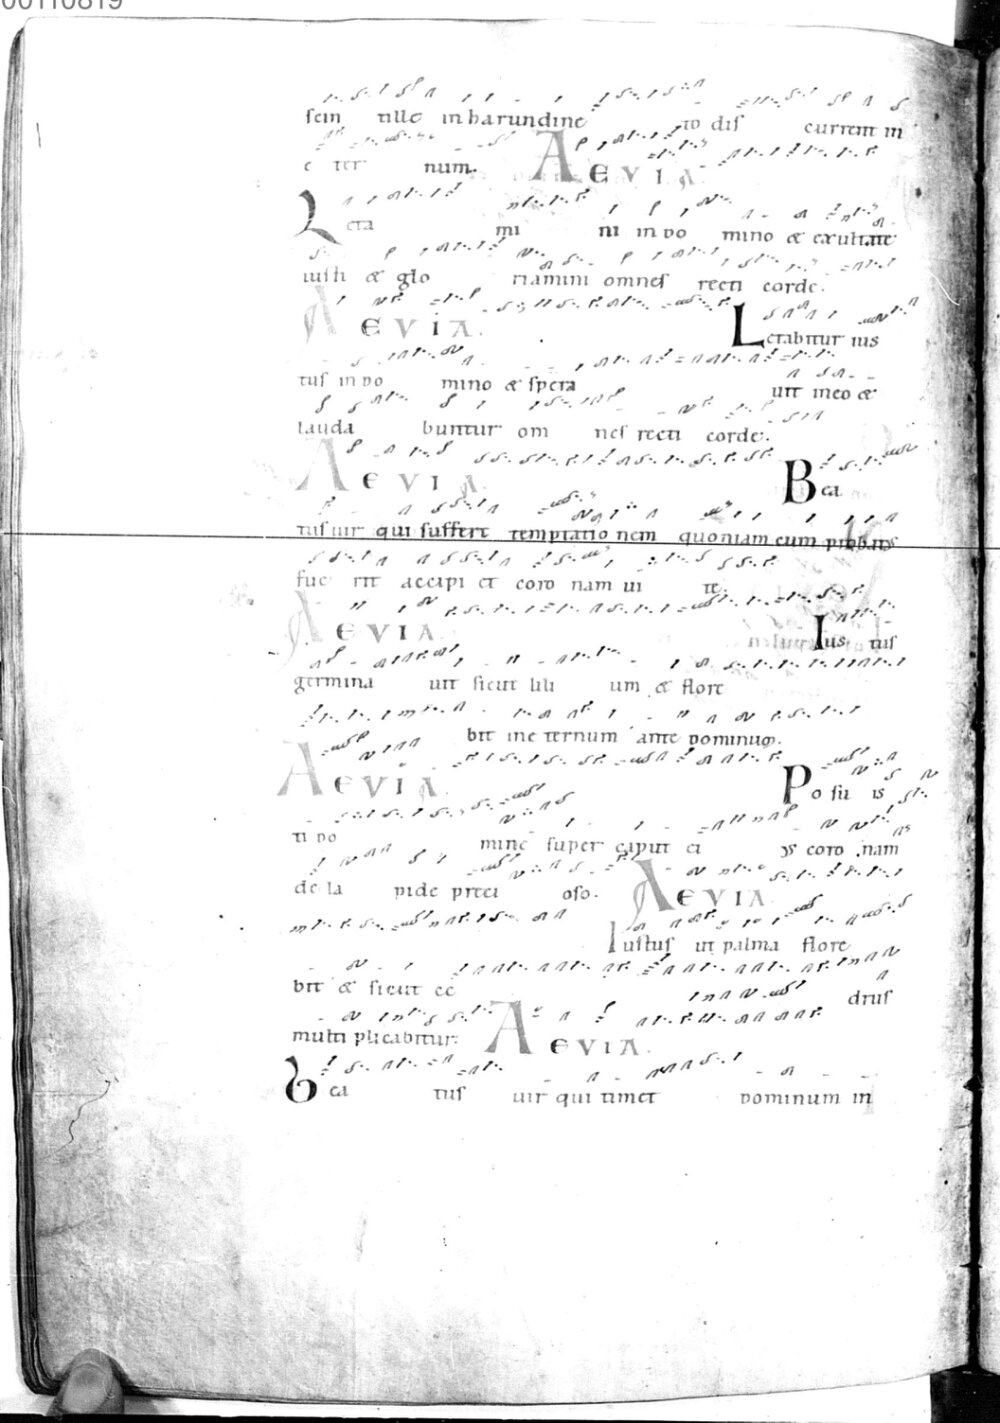 00110819
scin tille in harundine to dis current in
e ter num. AEVIA
Leta mi ni in do mino & exultate
iusti & glo riamini omnes recti corde.
AEVIA. Letabitur ius
tus in do mino & spera uit in eo &
lauda buntur om nes recti corde.
AEVIA Bea
tus uir qui suffert temptatio nem quoniam cum probatus
fue rit accipi et coro nam ui te.
AEVIA Ius tus
germina uit sicut lili um & flore
bit in e ternum ante dominum.
AEVIA. Po su is
ti do mine super caput ei us coro nam
de la pide preci oso. AEVIA
Iustus ut palma flore
bit & sicut ce drus
multi plicabitur. AEVIA.
Bea tus uir qui timet dominum in